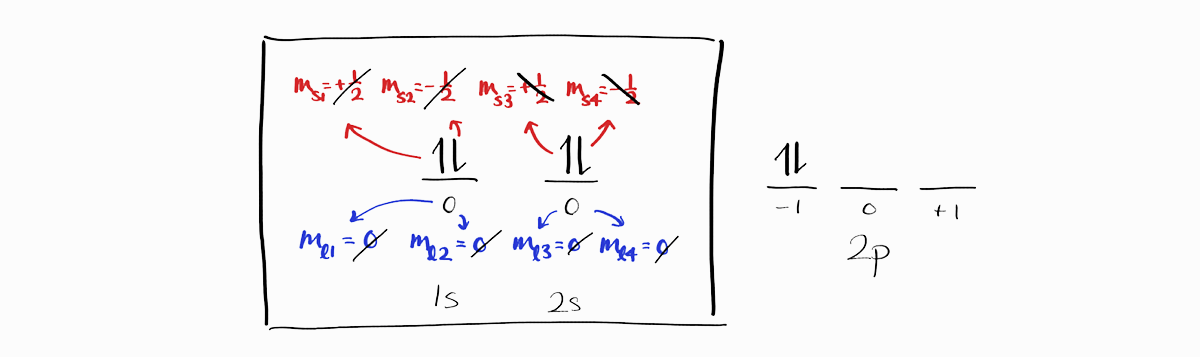 m_s1 = +1/2 m_s2 = -1/2 m_s3 = +1/2 m_s4 = -1/2
⥮ ⥮ ⥮
0 0 -1 0 +1
m_ℓ1 = 0 m_ℓ2 = 0 m_ℓ3 = 0 m_ℓ4 = 0
1s 2s 2p